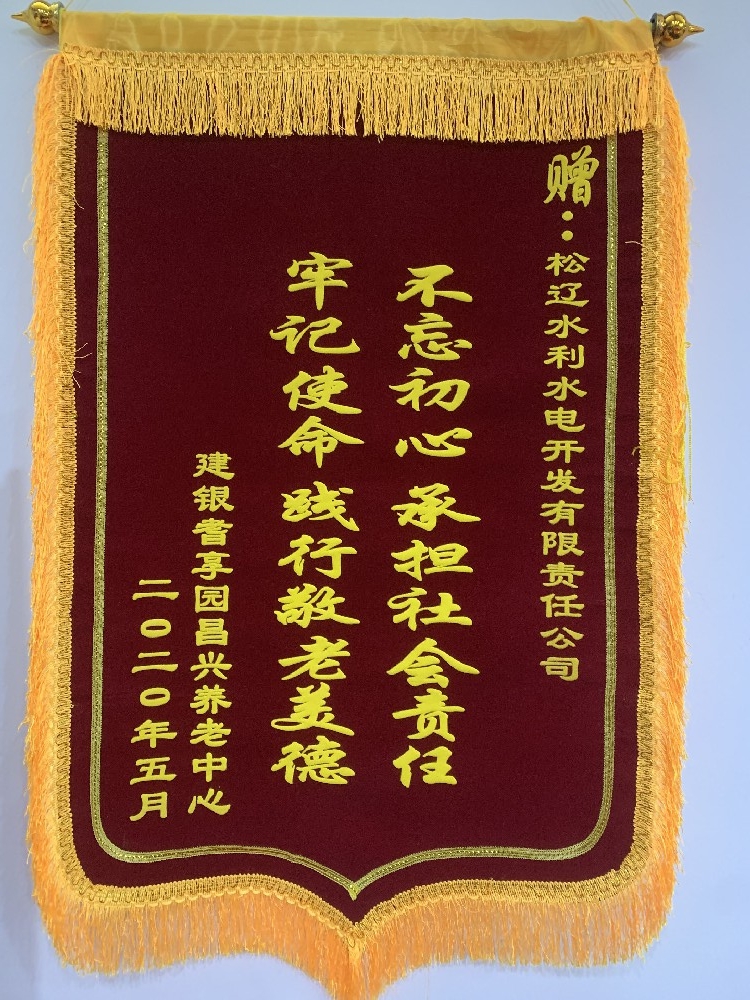 赠：松辽水利水电开发有限责任公司
不忘初心 承担社会责任
牢记使命 践行敬老美德
建银耆享园昌兴养老中心
二〇二〇年五月